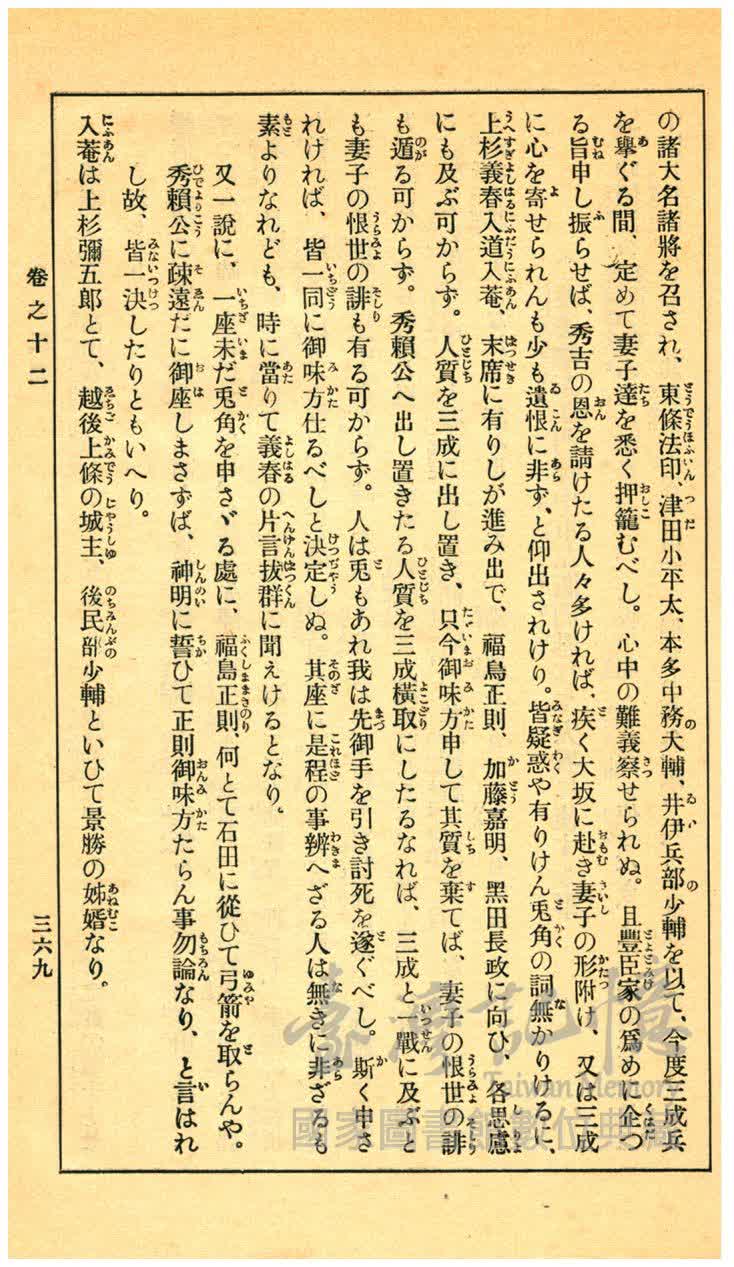 の諸大名諸將を召され、東條法印、津田小平太、本多中務大輔、井伊兵部少輔を以て、今度三成兵
を擧ぐる間、定めて妻子達を悉く押籠むべし。心中の難義察せられぬ。且豐臣家の爲めに企つ
る旨申し振らせば、秀吉の恩を請けたる人々多ければ、疾く大坂に赴き妻子の形附け、又は三成
に心を寄せられんも少も遺恨に非ず、と仰出されけり。皆疑惑や有りけん兎角の詞無かりけるに、
上杉義春入道入菴、末席に有りしが進み出で、福島正則、加藤嘉明、黑田長政に向ひ、各思慮
にも及ぶ可からず。人質を三成に出し置き、只今御味方申して其質を棄てば、妻子の恨世の誹
も遁る可からず。秀賴公へ出し置きたる人質を三成橫取にしたるなれば、三成と一戰に及ぶと
も妻子の恨世の誹も有る可からず。人は兎もあれ我は先御手を引き討死を遂ぐべし。斯く申さ
れければ、皆一同に御味方仕るべしと決定しぬ。其座に是程の事辨へざる人は無きに非ざるも
素よりなれども、時に當りて義春の片言拔群に聞えけるとなり。
又一說に、一座未だ兎角を申さゞる處に、福島正則、何とて石田に從ひて弓箭を取らんや。
秀賴公に疎遠だに御座しまさずば、神明に誓ひて正則御味方たらん事勿論なり、と言はれ
し故、皆一決したりともいへり。
入菴は上杉彌五郎とて、越後上條の城主、後民部少輔といひて景勝の姊婿なり。
卷之十二
三六九
臺灣記憶
Taiwan Memory
國家圖書館數位典藏